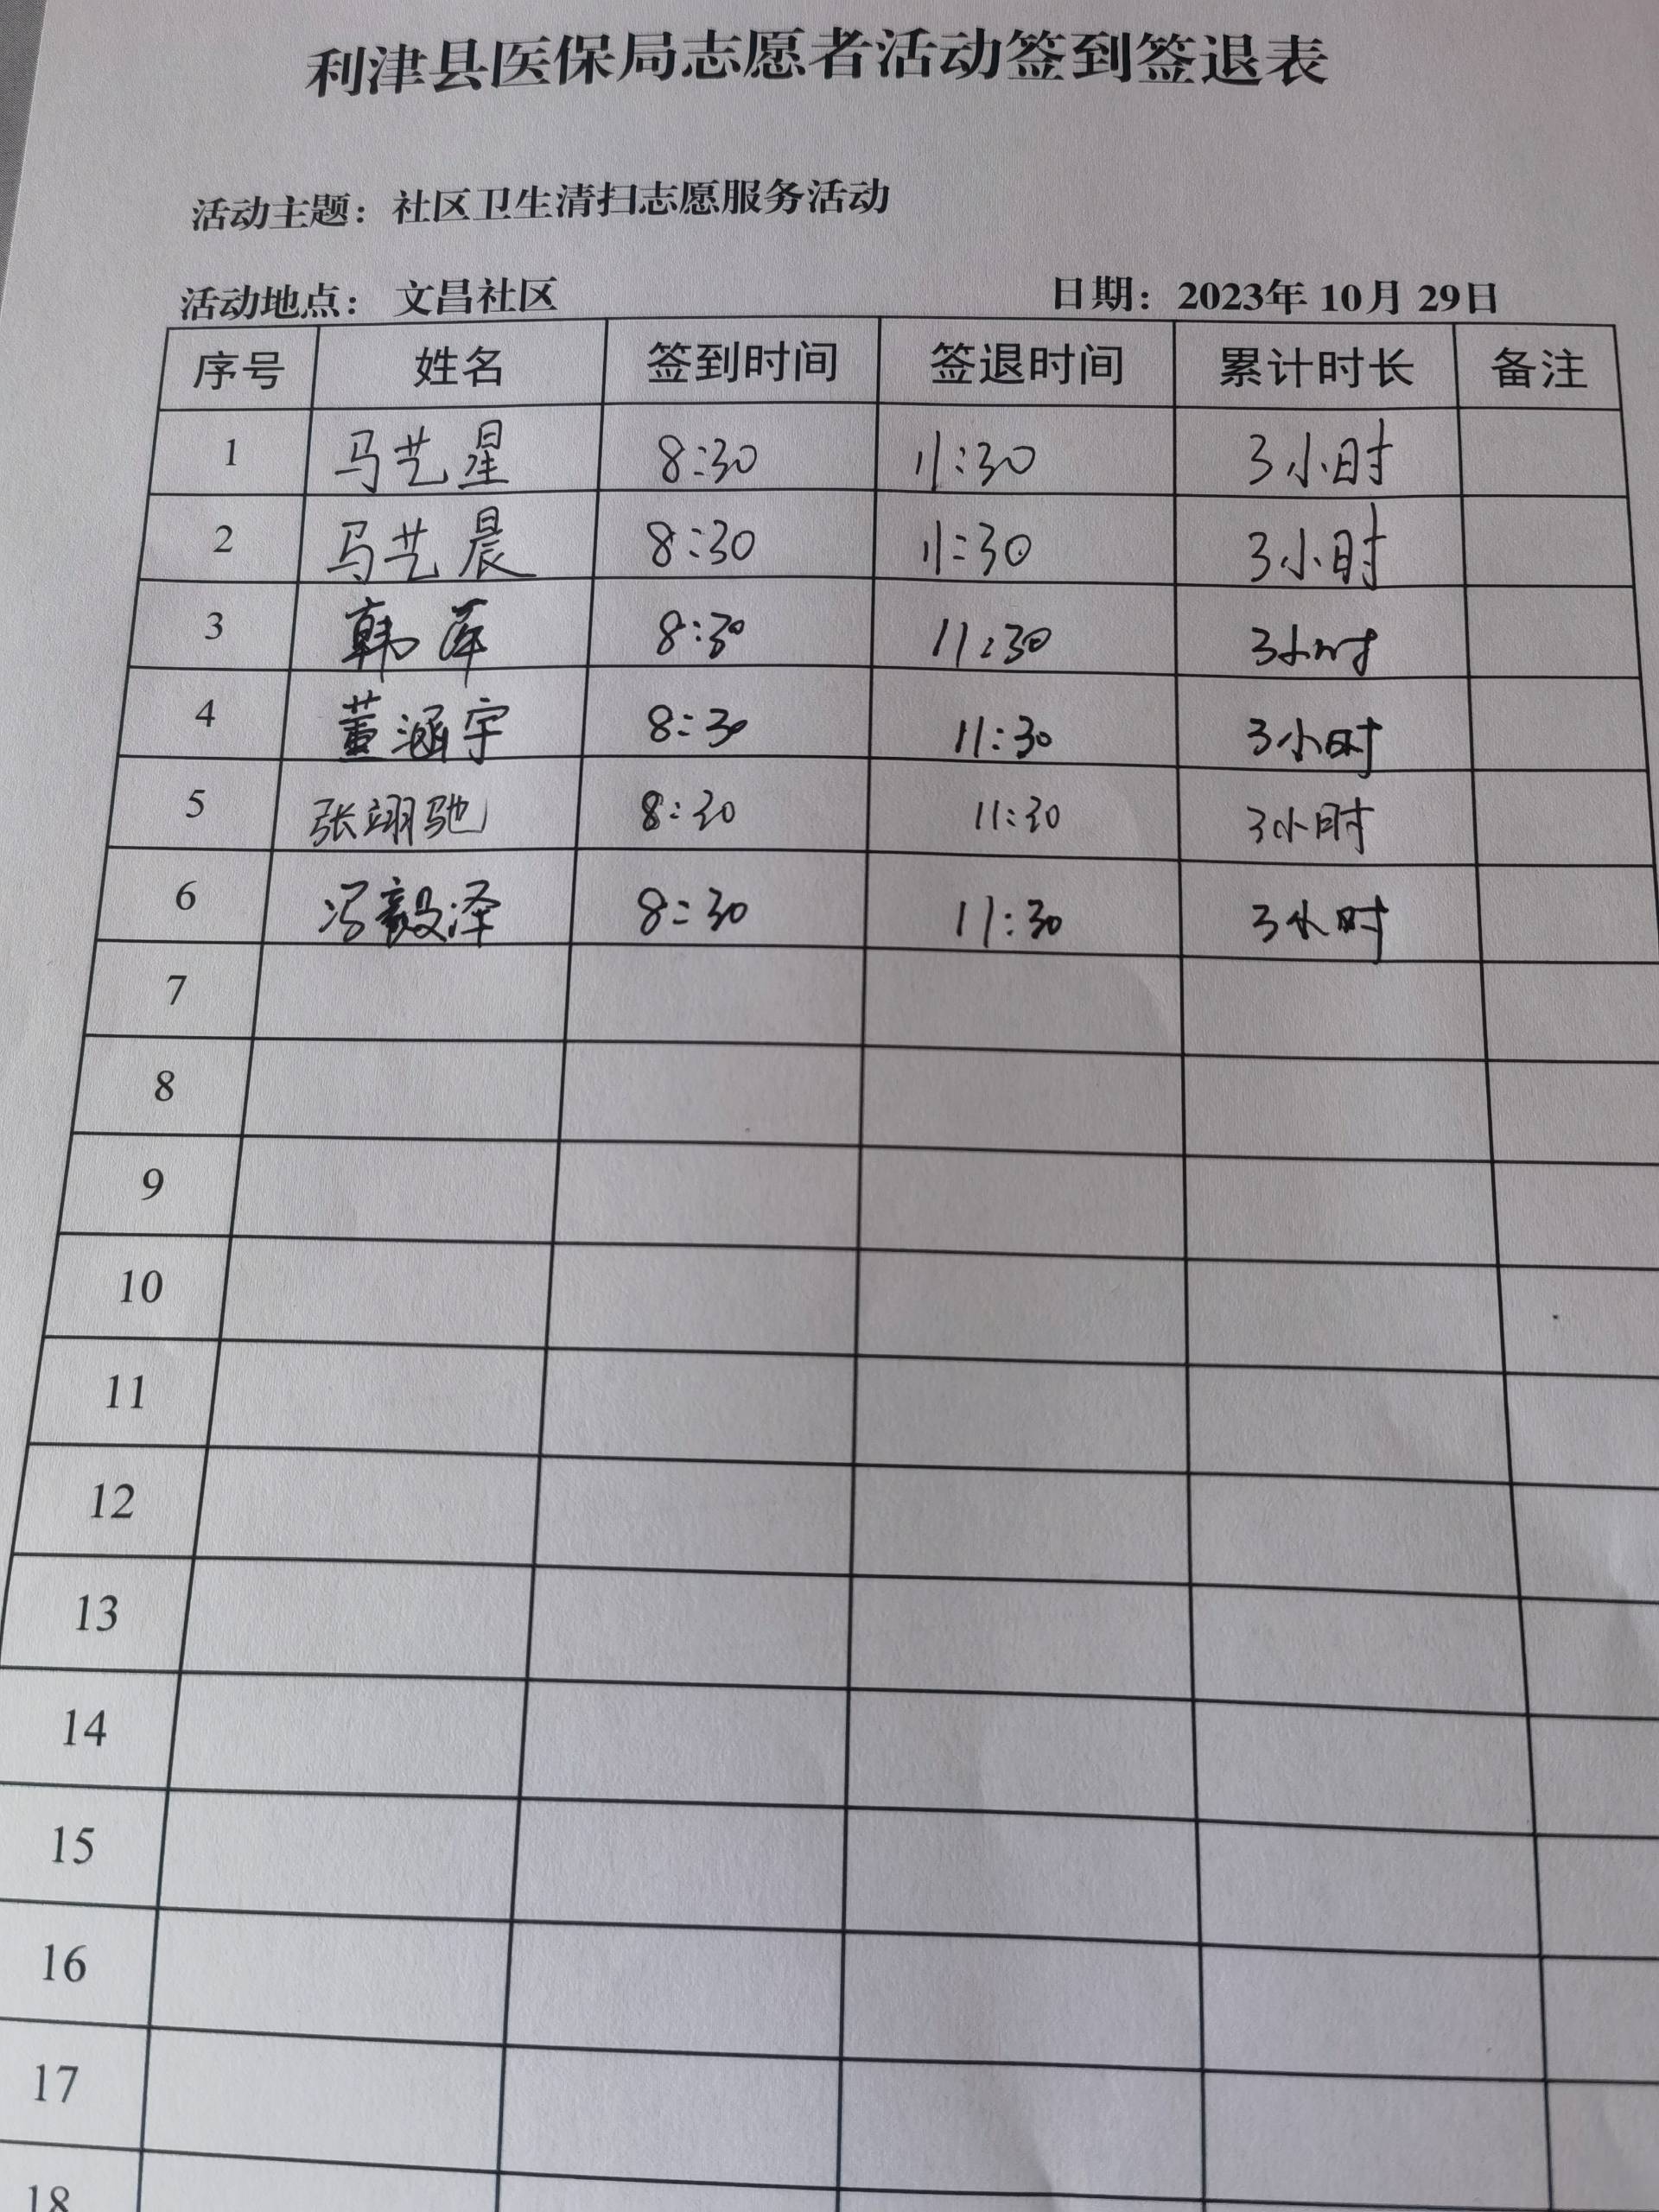 利津县医保局志愿者活动签到签退表
活动主题：社区卫生清扫志愿服务活动
活动地点： 文昌社区 日期：2023年10月29日
序号 姓名 签到时间 签退时间 累计时长 备注
1 马艺星 8:30 11:30 3小时
2 马艺晨 8:30 11:30 3小时
3 韩 8:30 11:30 3小时
4 董涵宇 8:30 11:30 3小时
5 张翊驰 8:30 11:30 3小时
6 冯毅泽 8:30 11:30 3小时
7
8
9
10
11
12
13
14
15
16
17
18